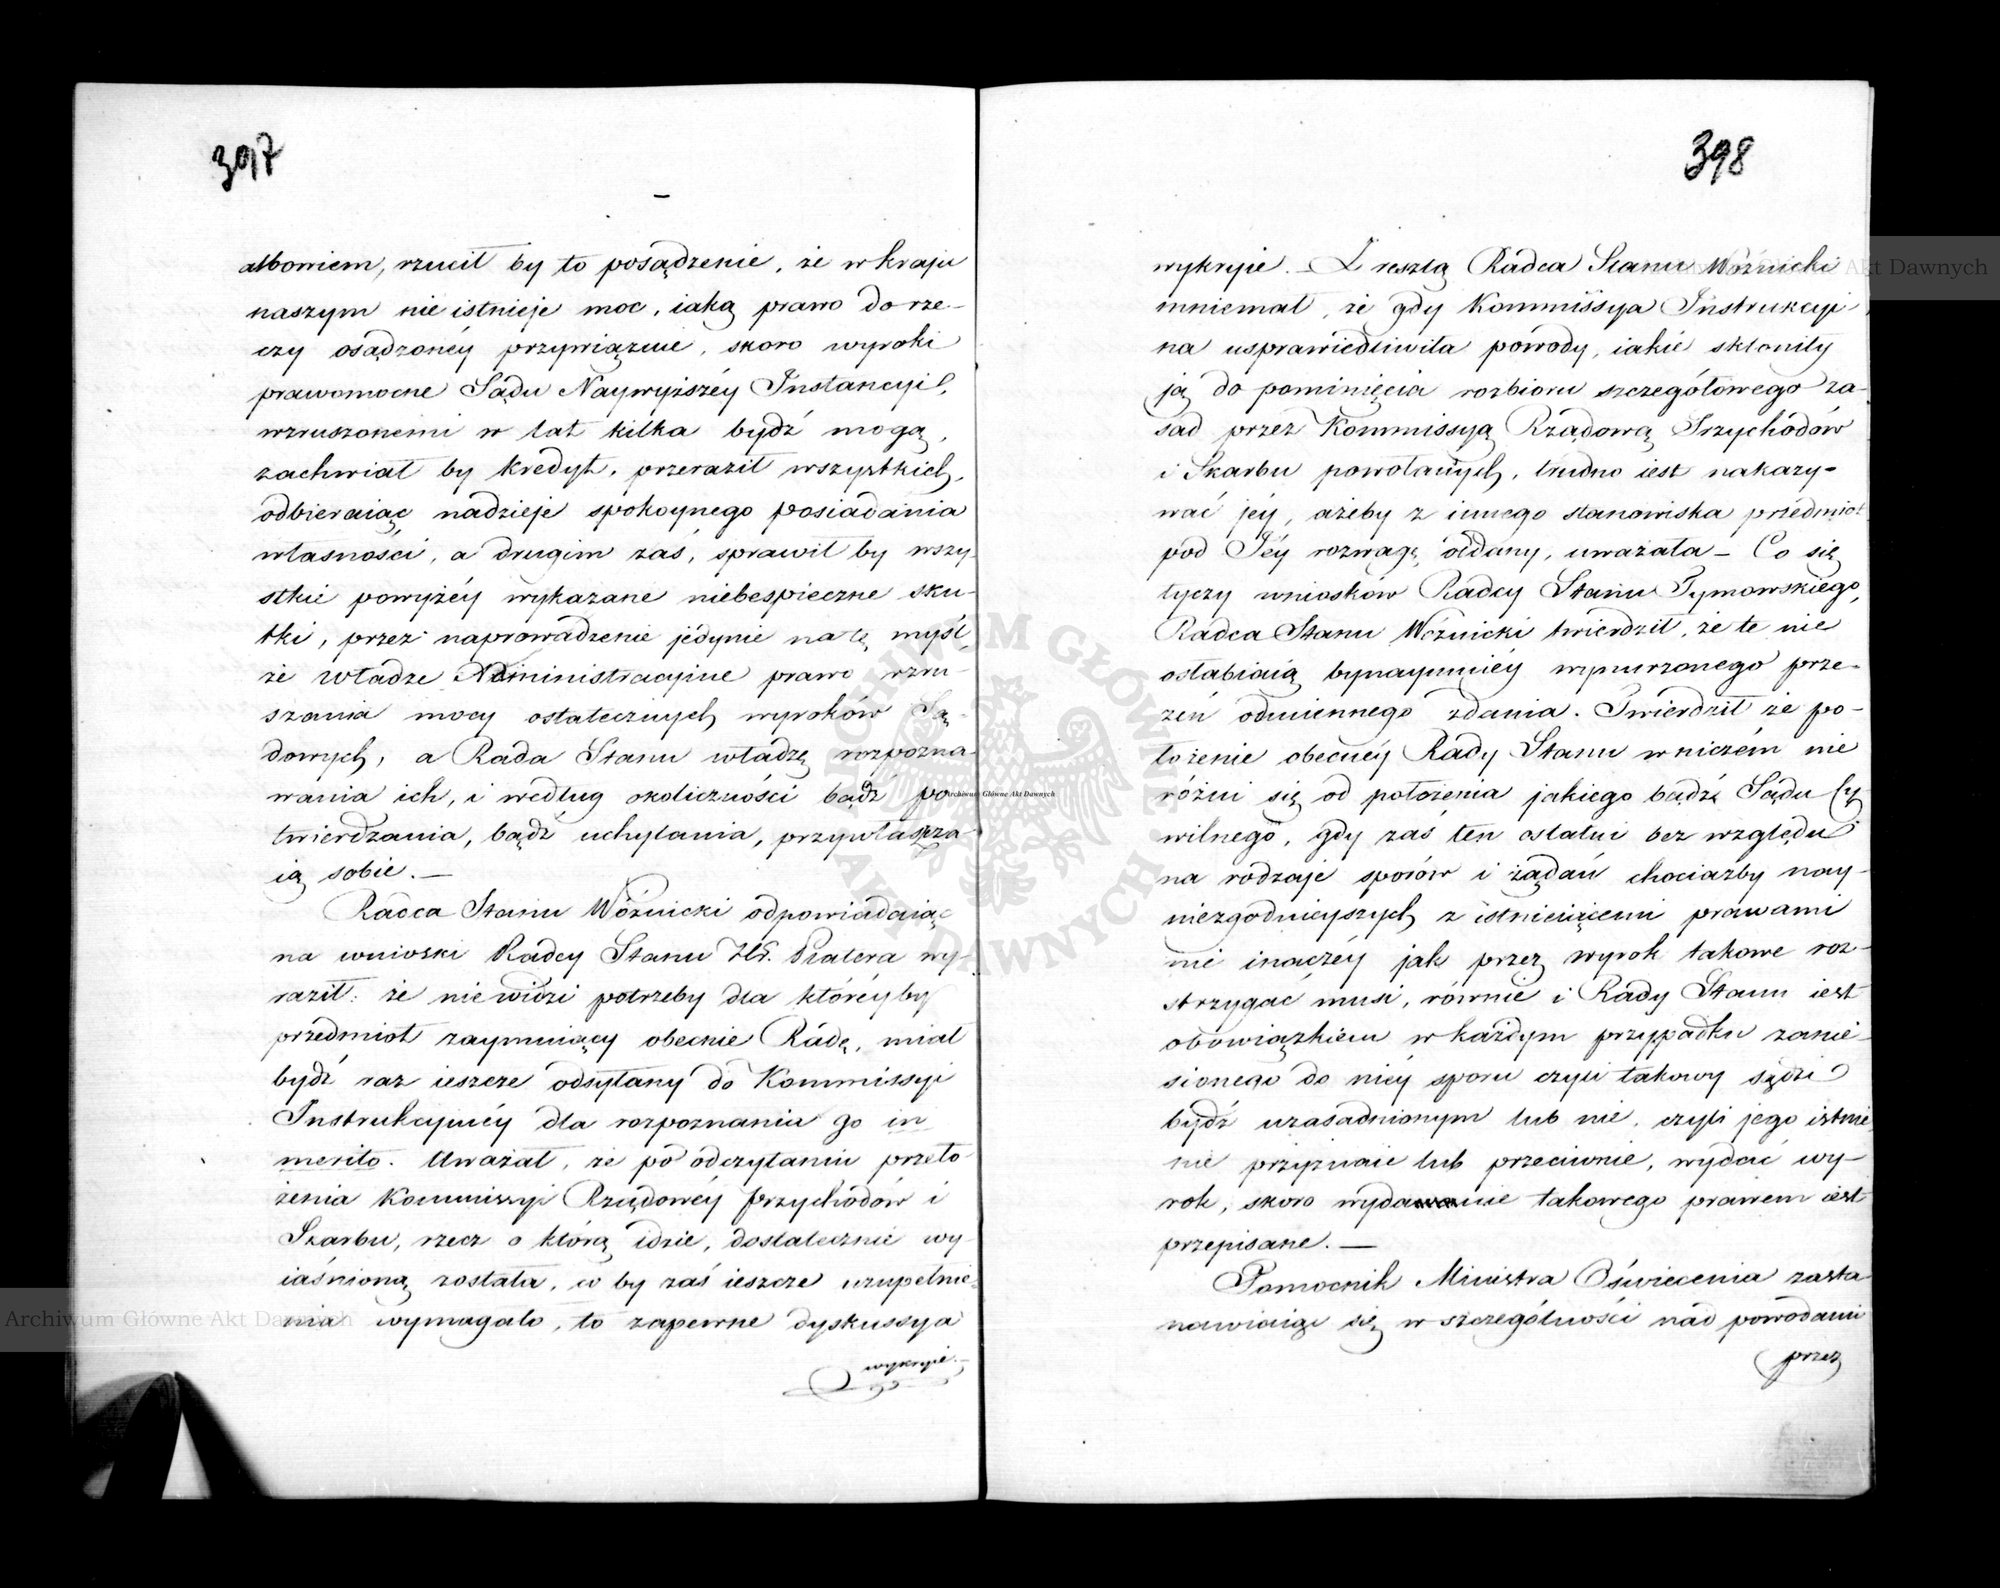 397
albowiem, rzucił by to posądzenie, że w kraju
naszym nie istnieje moc, iaką prawo do rze-
czy osądzonéy przywiązuie, skoro wyroki
prawomocne Sądu Naywyższéy Instancyi,
wzruszonemi w lat kilka bydź mogą,
zachwiał by kredyt, przeraził wszystkich,
odbieraiąc nadzieje spokoynego posiadania
własności, a drugim zaś, sprawił by wszy-
stkie powyżéy wykazane niebespieczne sku-
tki, przez naprowadzenie jedynie na tę myśl,
że władze Administracyine prawo wzru-
szania mocy ostatecznych wyroków Są-
dowych, a Rada Stanu władzę rozpozna-
wania ich, i według okoliczności bądź po
twierdzania, bądź uchylania, przywłaszcza-
ią sobie. —
Radca Stanu Woźnicki odpowiadaiąc
na wnioski Radcy Stanu Hr. Platera wy-
raził: że nie widzi potrzeby dla któréyby
przedmiot zaymuiący obecnie Radę, miał
bydź raz ieszcze odsyłany do Kommissyi
Instrukcyinéy dla rozpoznania go in
merito. Uważał, że po odczytaniu przeło-
żenia Kommissyi Rządowéy Przychodów i
Skarbu, rzecz o którą idzie, dostatecznie wy-
iaśnioną została, co by zaś ieszcze uzupełnie-
nia wymagało, to zapewne dyskussya
wykryie. —
398
wykryie. — Z resztą Radca Stanu Woźnicki
mniemał, że gdy Kommissya Instrukcyi-
na usprawiedliwiła powody, iakie skłoniły
ją do pominięcia rozbioru szczegółowego za-
sad przez Kommissyą Rządową Przychodów
i Skarbu powołanych, trudno iest nakazy-
wać jéy, ażeby z innego stanowiska przedmiot
pod Jéy rozwagę oddany, uważała — Co się
tyczy wniosków Radcy Stanu Tymowskiego,
Radca Stanu Woźnicki twierdził, że te nie
osłabiaią bynaymniéy wynurzonego prze-
zeń odmiennego zdania. Twierdził że po-
łożenie obecnéy Rady Stanu w niczém nie
różni się od położenia jakiego bądź Sądu Cy
wilnego, gdy zaś ten ostatni bez względu
na rodzaje sporów i żądań chociażby nay-
niezgodnieyszych z istnieiącemi prawami
nie inaczéy jak przez wyrok takowe roz-
strzygać musi, równie i Rady Stanu iest
obowiązkiem w każdym przypadku zanie-
sionego do niéy sporu czyli takowy sądzi
bydź uzasadnionym lub nie, czyli jego istnie
nie przyznaie lub przeciwnie, wydać wy-
rok, skoro wydanie takowego prawem iest
przepisane. —
Pomocnik Ministra Oświecenia zasta
nawiaiąc się w szczególności nad powodami
przez
Archiwum Główne Akt Dawnych
Archiwum Główne Akt Dawnych
ARCHIWUM GŁÓWNE AKT DAWNYCH
Akt Dawnych